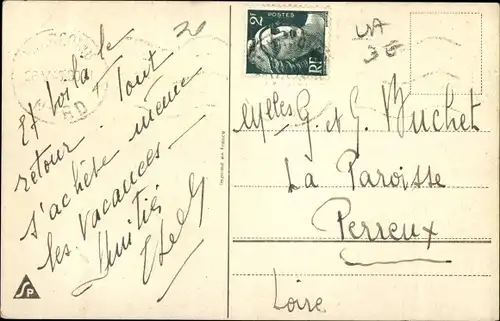 Et voilà le
retour. Tout
s'achète même
les vacances
Amitiés
Imprimé en France
SP
2F
POSTES
RF
Mlles G. et G. Buchet
La Paroisse
Perreux
Loire